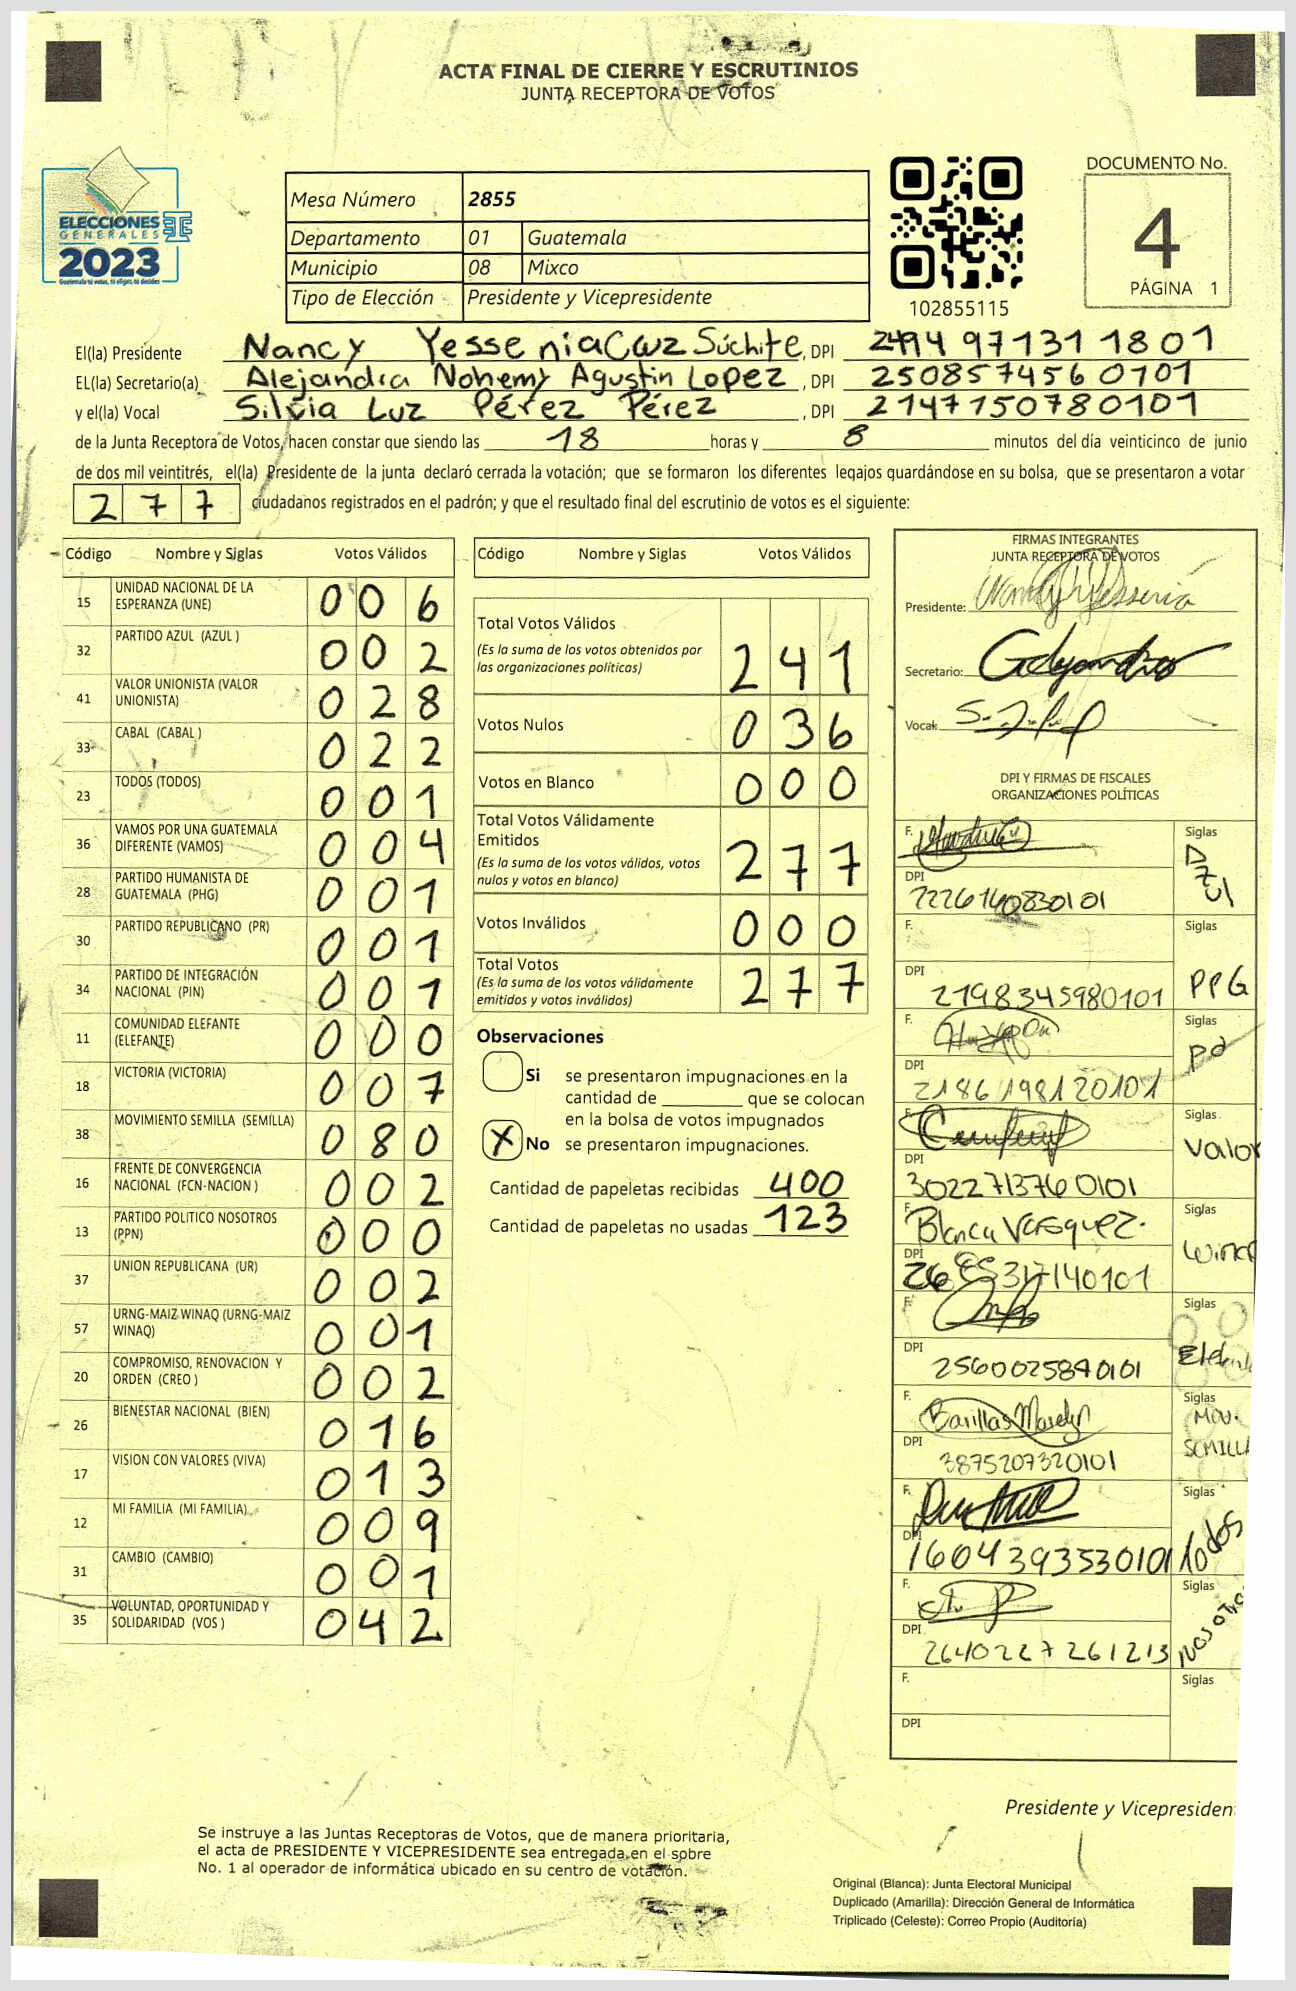 ACTA FINAL DE CIERRE Y ESCRUTINIOS
JUNTA RECEPTORA DE VOTOS
ELECCIONES
GENERALES
2023
Guatemala tú votas, tú eliges, tú decides
Mesa Número 2855
Departamento 01 Guatemala
Municipio 08 Mixco
Tipo de Elección Presidente y Vicepresidente
102855115
DOCUMENTO No.
4
PÁGINA 1
El(la) Presidente Nancy Yessenia Súchite, DPI 2494 97131 1801
EL(la) Secretario(a) Alejandra Nohemy Agustin Lopez, DPI 2508574560101
y el(la) Vocal Silvia Luz Pérez Pérez, DPI 2147150780101
de la Junta Receptora de Votos, hacen constar que siendo las 18 horas y 8 minutos del día veinticinco de junio
de dos mil veintitrés, el(la) Presidente de la junta declaró cerrada la votación; que se formaron los diferentes legajos guardándose en su bolsa, que se presentaron a votar
277 ciudadanos registrados en el padrón; y que el resultado final del escrutinio de votos es el siguiente:
Código Nombre y Siglas Votos Válidos
15 UNIDAD NACIONAL DE LA ESPERANZA (UNE) 006
32 PARTIDO AZUL (AZUL ) 002
41 VALOR UNIONISTA (VALOR UNIONISTA) 028
33 CABAL (CABAL ) 022
23 TODOS (TODOS) 001
36 VAMOS POR UNA GUATEMALA DIFERENTE (VAMOS) 004
28 PARTIDO HUMANISTA DE GUATEMALA (PHG) 001
30 PARTIDO REPUBLICANO (PR) 001
34 PARTIDO DE INTEGRACIÓN NACIONAL (PIN) 001
11 COMUNIDAD ELEFANTE (ELEFANTE) 000
18 VICTORIA (VICTORIA) 007
38 MOVIMIENTO SEMILLA (SEMILLA) 080
16 FRENTE DE CONVERGENCIA NACIONAL (FCN-NACION ) 002
13 PARTIDO POLITICO NOSOTROS (PPN) 000
37 UNION REPUBLICANA (UR) 002
57 URNG-MAIZ WINAQ (URNG-MAIZ WINAQ) 001
20 COMPROMISO, RENOVACION Y ORDEN (CREO ) 002
26 BIENESTAR NACIONAL (BIEN) 016
17 VISION CON VALORES (VIVA) 013
12 MI FAMILIA (MI FAMILIA) 009
31 CAMBIO (CAMBIO) 001
35 VOLUNTAD, OPORTUNIDAD Y SOLIDARIDAD (VOS ) 042
Código Nombre y Siglas Votos Válidos
Total Votos Válidos
(Es la suma de los votos obtenidos por
las organizaciones políticas) 241
Votos Nulos 036
Votos en Blanco 000
Total Votos Válidamente
Emitidos
(Es la suma de los votos válidos, votos
nulos y votos en blanco) 277
Votos Inválidos 000
Total Votos
(Es la suma de los votos válidamente
emitidos y votos inválidos) 277
Observaciones
Si se presentaron impugnaciones en la
cantidad de ________ que se colocan
en la bolsa de votos impugnados
X No se presentaron impugnaciones.
Cantidad de papeletas recibidas 400
Cantidad de papeletas no usadas 123
FIRMAS INTEGRANTES
JUNTA RECEPTORA DE VOTOS
Presidente:
Secretario:
Vocal:
DPI Y FIRMAS DE FISCALES
ORGANIZACIONES POLÍTICAS
F. Siglas Azul
DPI
F. Siglas PPG
DPI 2198345980101
F. Siglas
DPI 2186198120101
F. Siglas Valor
DPI 3022713760101
F. Blanca Vasquez. Siglas
DPI
F. Siglas
DPI 2560025840101
F. Barillas Siglas MOV. SEMILLA
DPI 3875207320101
F. Siglas Todos
DPI 1604393530101
F. Siglas
DPI 2640227261213
F. Siglas
DPI
Presidente y Vicepresiden
Se instruye a las Juntas Receptoras de Votos, que de manera prioritaria,
el acta de PRESIDENTE Y VICEPRESIDENTE sea entregada en el sobre
No. 1 al operador de informática ubicado en su centro de votación.
Original (Blanca): Junta Electoral Municipal
Duplicado (Amarilla): Dirección General de Informática
Triplicado (Celeste): Correo Propio (Auditoría)